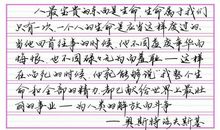 人最宝贵的东西是生命,生命属于我们
只有一次,一个人的生命是应当这样度过的:
当他回首往事的时候,他不因虚度年华而
悔恨,也不因碌碌无为而羞耻——这样
在临死的时候,他就能够说:“我整个生
命和全部的精力,都已献给世界上最壮
丽的事业——为人类的解放而斗争
——奥斯特洛夫斯基